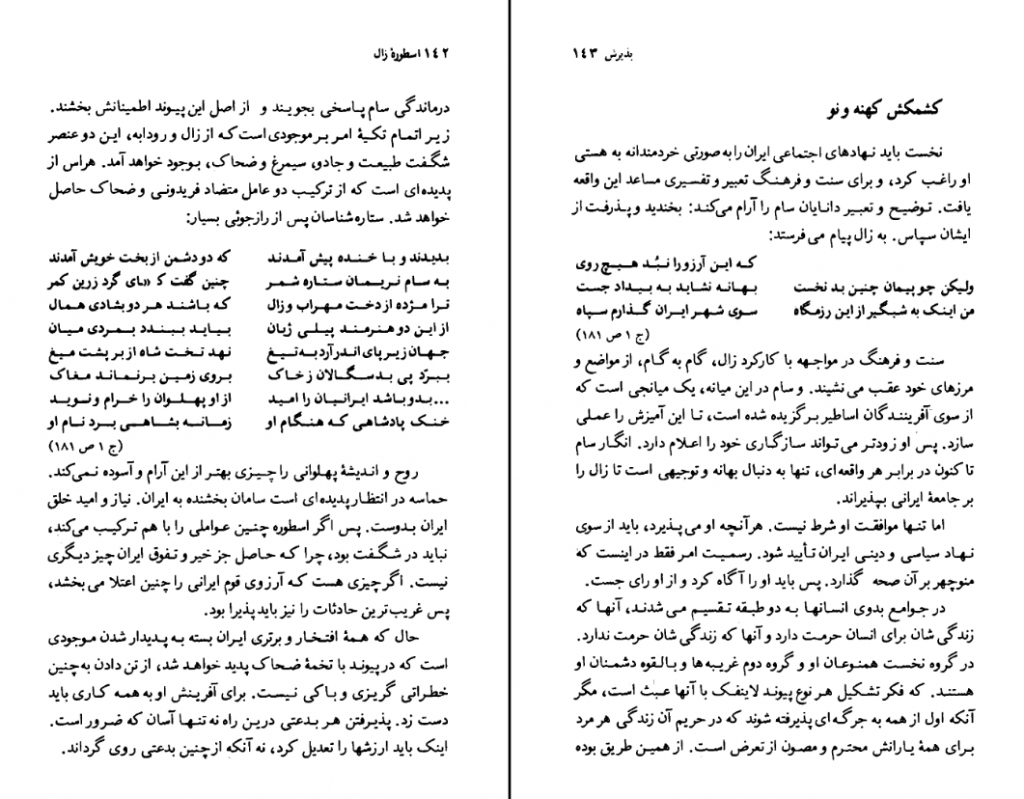 ۱۴۲ اسطورهٔ زال
درماندگی سام پاسخی بجویند و از اصل این پیوند اطمینانش بخشند.
زیر اتمام تکیهٔ امر بر موجودی است که از زال و رودابه، این دو عنصر
شگفت طبیعت و جادو، سیمرغ و ضحاک، بوجود خواهد آمد. هراس از
پدیده‌ای است که از ترکیب دو عامل متضاد فریدونی و ضحاک حاصل
خواهد شد. ستاره‌شناسان پس از رازجوئی بسیار:
بدیدند و با خنده پیش آمدند که دو دشمن از بخت خویش آمدند
به سام نریمان ستاره شمر چنین گفت ک «ای گرد زرین کمر
ترا مژده از دخت مهراب و زال که باشند هر دو بشادی همال
از این دو هنرمند پیلی ژیان بیاید ببندد بمردی میان
جهان زیر پای اندر آرد به تیغ نهد تخت شاه از بر پشت میغ
ببرد پی بدسگالان ز خاک بروی زمین بر نماند مغاک
...بدو باشد ایرانیان را امید از او پهلوان را خرام و نوید
خنک پادشاهی که هنگام او زمانه بشاهی برد نام او
(ج ۱ ص ۱۸۱)
روح و اندیشهٔ پهلوانی را چیزی بهتر از این آرام و آسوده نمی‌کند.
حماسه در انتظار پدیده‌ای است سامان بخشنده به ایران. نیاز و امید خلق
ایران بدوست. پس اگر اسطوره چنین عواملی را با هم ترکیب می‌کند،
نباید در شگفت بود، چرا که حاصل جز خیر و تفوق ایران چیز دیگری
نیست. اگر چیزی هست که آرزوی قوم ایرانی را چنین اعتلا می‌بخشد،
پس غریب‌ترین حادثات را نیز باید پذیرا بود.
حال که همهٔ افتخار و برتری ایران بسته به پدیدار شدن موجودی
است که در پیوند با تخمهٔ ضحاک پدید خواهد شد، از تن دادن به چنین
خطراتی گریزی و باکی نیست. برای آفرینش او به همه کاری باید
دست زد. پذیرفتن هر بدعتی درین راه نه تنها آسان که ضرور است.
اینک باید ارزشها را تعدیل کرد، نه آنکه از چنین بدعتی روی گرداند.
پذیرش ۱۴۳
کشمکش کهنه و نو
نخست باید نهادهای اجتماعی ایران را به صورتی خردمندانه به هستی
او راغب کرد، و برای سنت و فرهنگ تعبیر و تفسیری مساعد این واقعه
یافت. توضیح و تعبیر دانایان سام را آرام می‌کند: بخندید و پذرفت از
ایشان سپاس. به زال پیام می‌فرستد:
که این آرزو را نبُد هیچ روی
ولیکن چو پیمان چنین بد نخست بهانه نشاید به بیداد جست
من اینک به شبگیر از این رزمگاه سوی شهر ایران گذارم سپاه
(ج ۱ ص ۱۸۱)
سنت و فرهنگ در مواجهه با کارکرد زال، گام به گام، از مواضع و
مرزهای خود عقب می‌نشیند. و سام در این میانه، یک میانجی است که
از سوی آفرینندگان اساطیر برگزیده شده است، تا این آمیزش را عملی
سازد. پس او زودتر می‌تواند سازگاری خود را اعلام دارد. انگار سام
تاکنون در برابر هر واقعه‌ای، تنها به دنبال بهانه و توجیهی است تا زال را
بر جامعهٔ ایرانی بپذیراند.
اما تنها موافقت او شرط نیست. هرآنچه او می‌پذیرد، باید از سوی
نهاد سیاسی و دینی ایران تأیید شود. رسمیت امر فقط در اینست که
منوچهر بر آن صحه گذارد. پس باید او را آگاه کرد و از او رای جست.
در جوامع بدوی انسانها به دو طبقه تقسیم می‌شدند، آنها که
زندگی‌شان برای انسان حرمت دارد و آنها که زندگی‌شان حرمت ندارد.
در گروه نخست همنوعان او و گروه دوم غریبه‌ها و بالقوه دشمنان او
هستند. که فکر تشکیل هر نوع پیوند لاینفک با آنها عبث است، مگر
آنکه اول از همه به جرگه‌ای پذیرفته شوند که در حریم آن زندگی هر مرد
برای همهٔ یارانش محترم و مصون از تعرض است. از همین طریق بوده